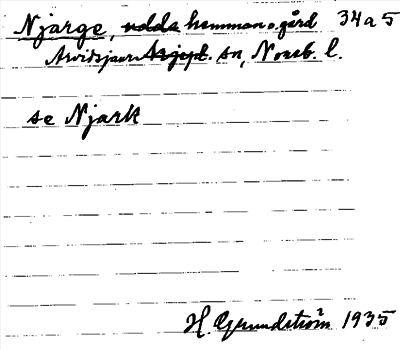 Njarge, udda hemman o. gård 34a5
Arvidsjaur Arjepl. sn, Norrb. l.
se Njark
H. Grundström 1935